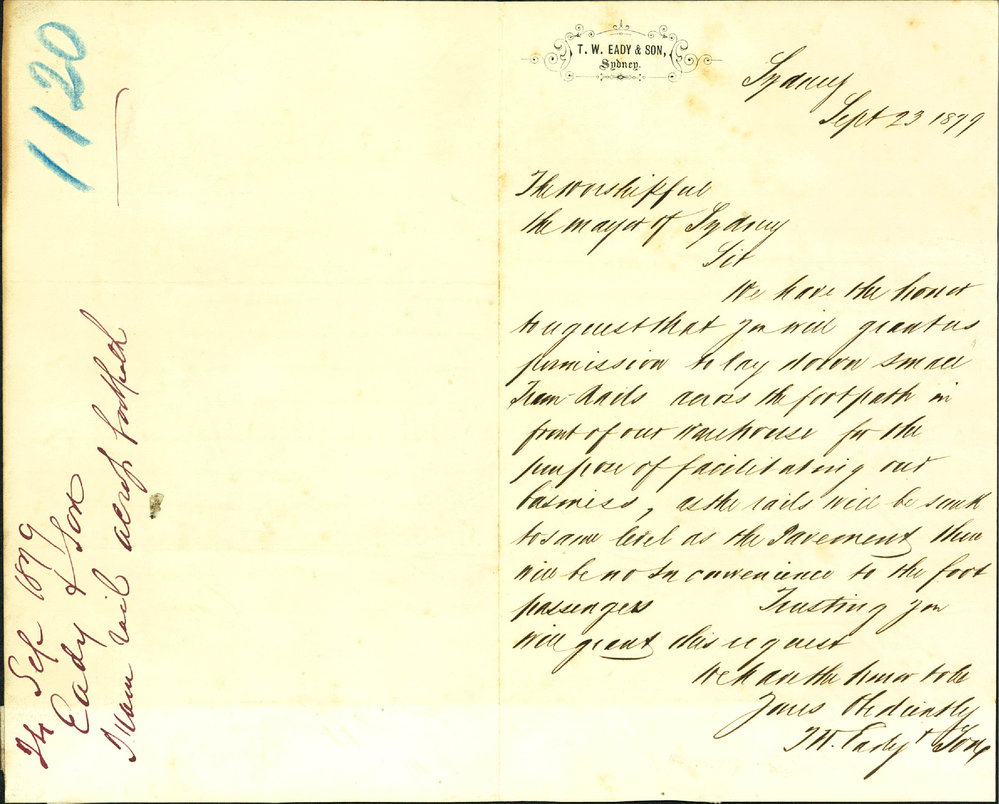 1120
24 Sep 1879
Eady & Son
Tram rail across footpath
T. W. EADY & SON,
Sydney.
Sydney
Sept 23 1879
The Worshipful
the mayor of Sydney
Sir
We have the honor
to request that you will grant us
permission to lay down small
Tram-Rails across the footpath in
front of our Warehouse for the
purpose of facilitating our
business, as the rails will be sunk
to same level as the Pavement there
will be no Inconvenience to the foot
passengers Trusting you
will grant this request
We have the honor to be
Yours Obediently
T W. Eady & Son